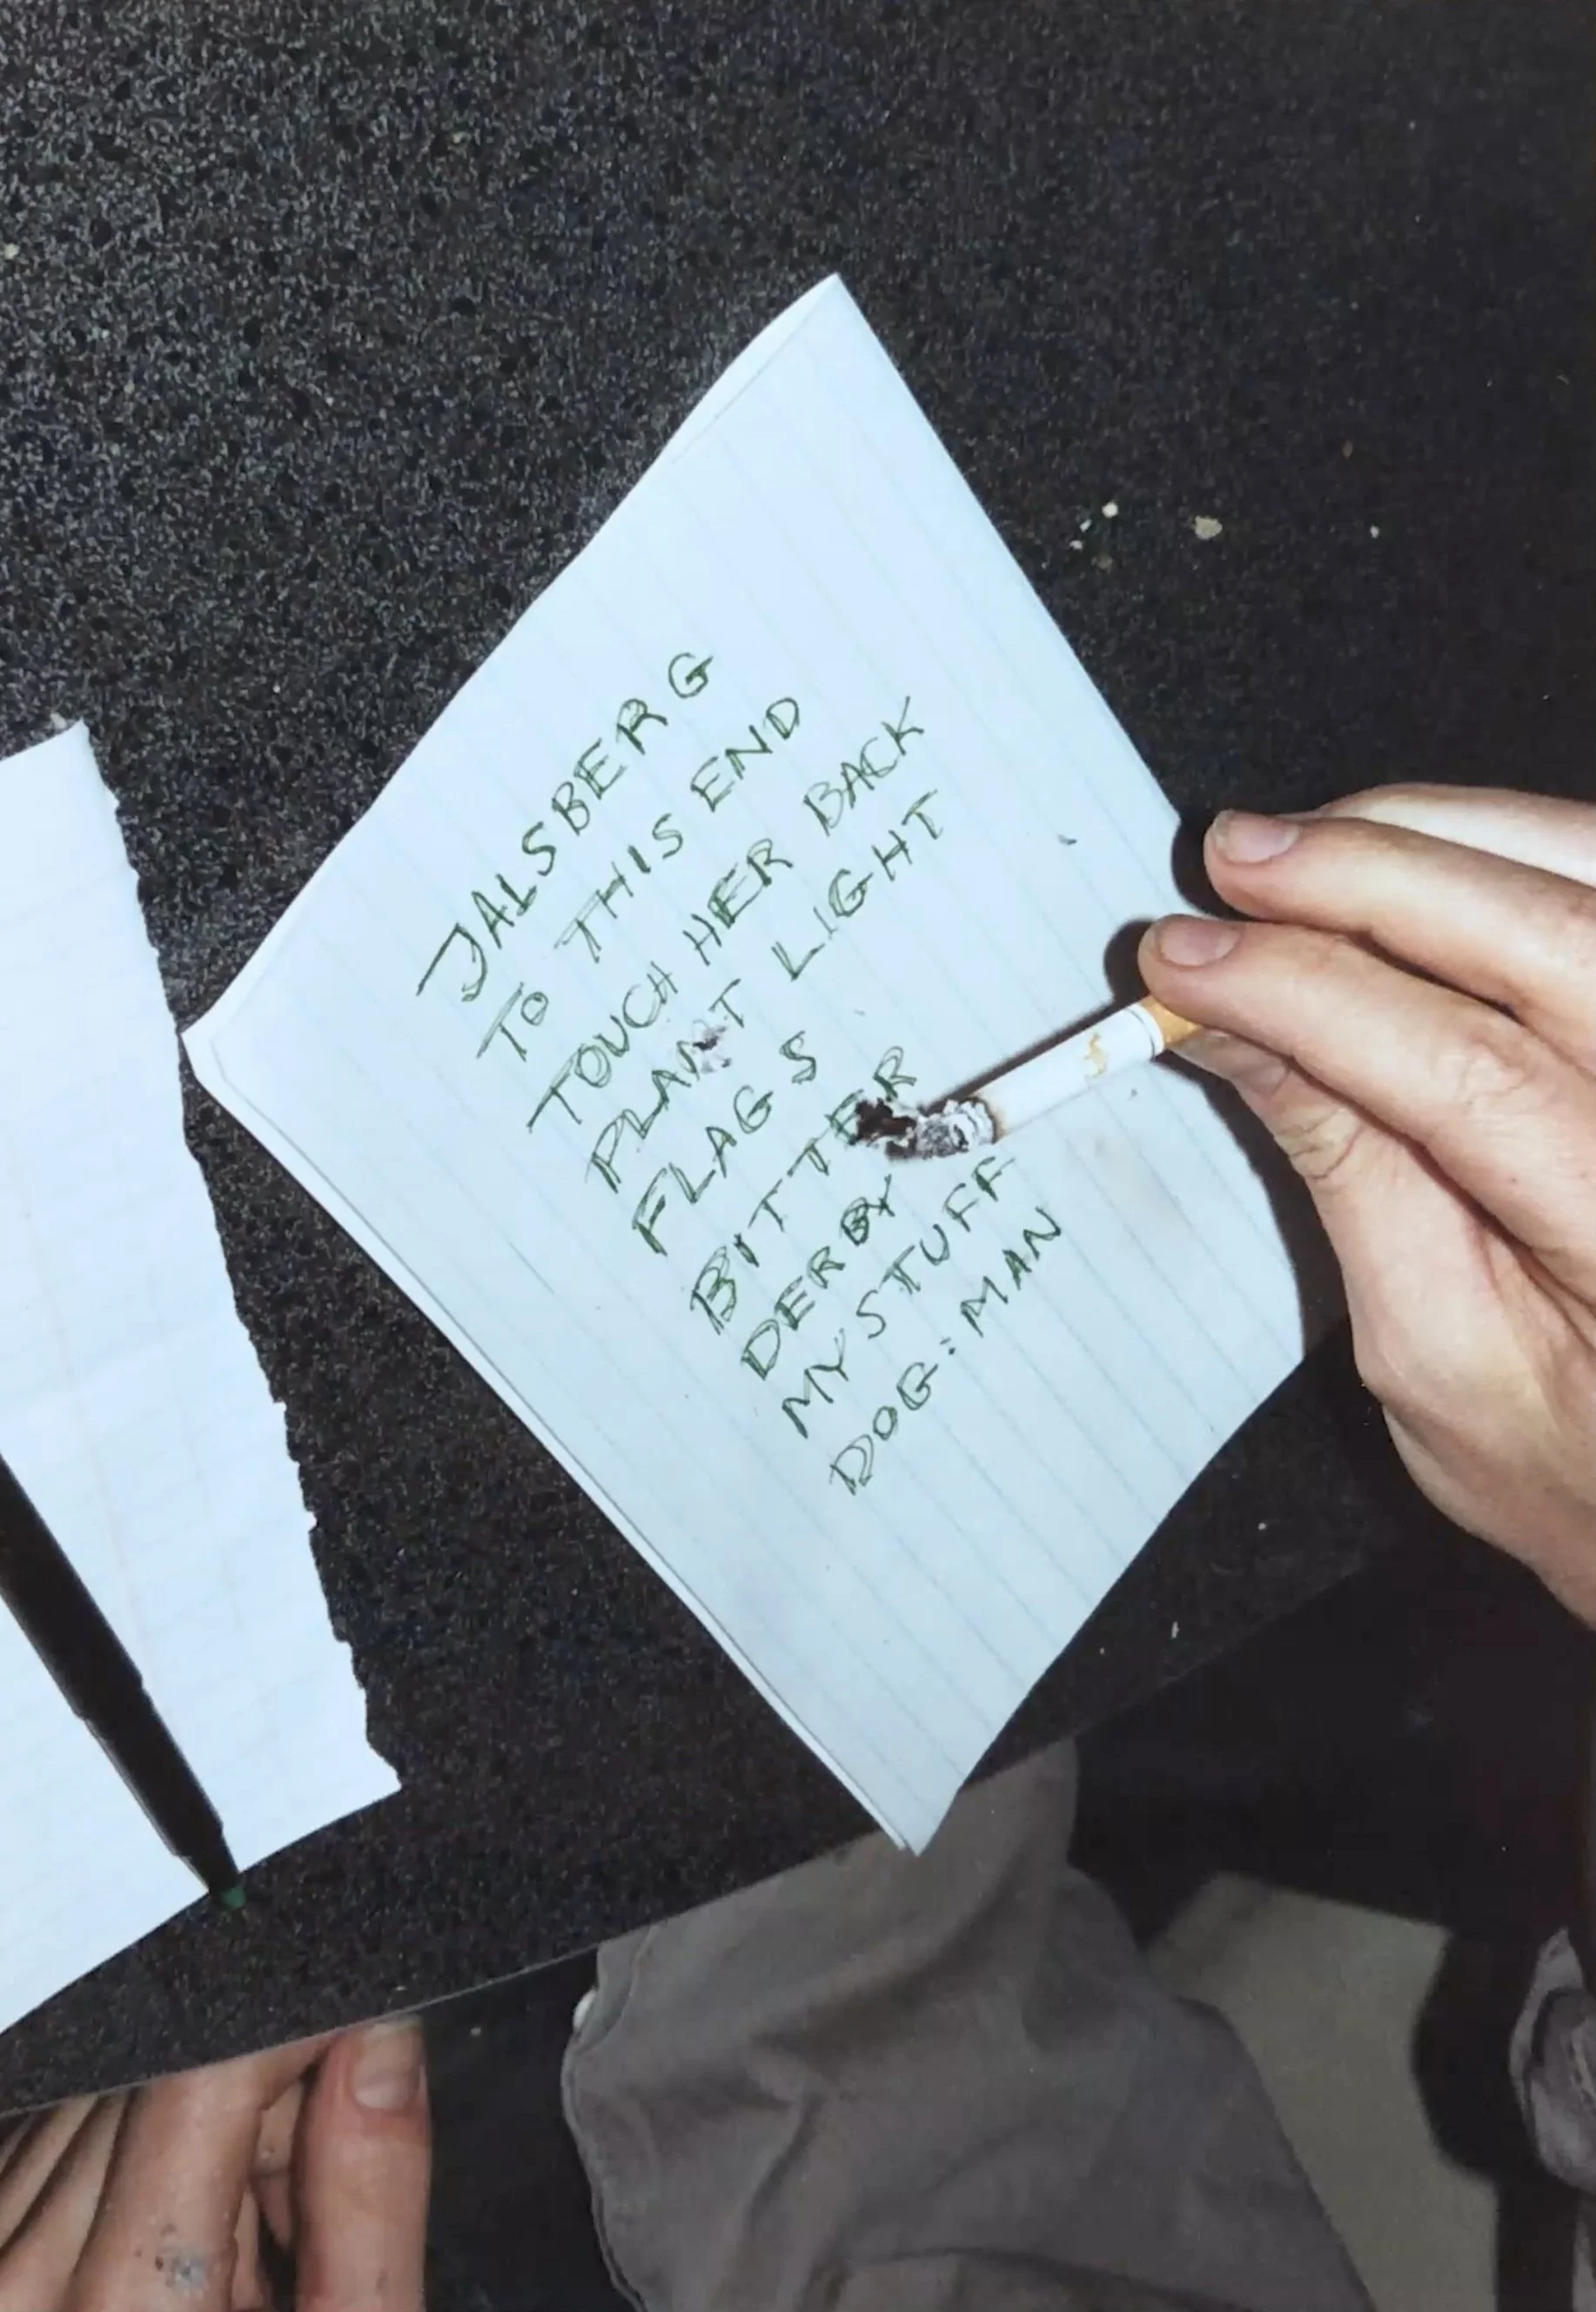 JALSBERG
TO THIS END
TOUCH HER BACK
PLANT LIGHT
FLAGS
BITTER
DERBY
MY STUFF
DOG: MAN